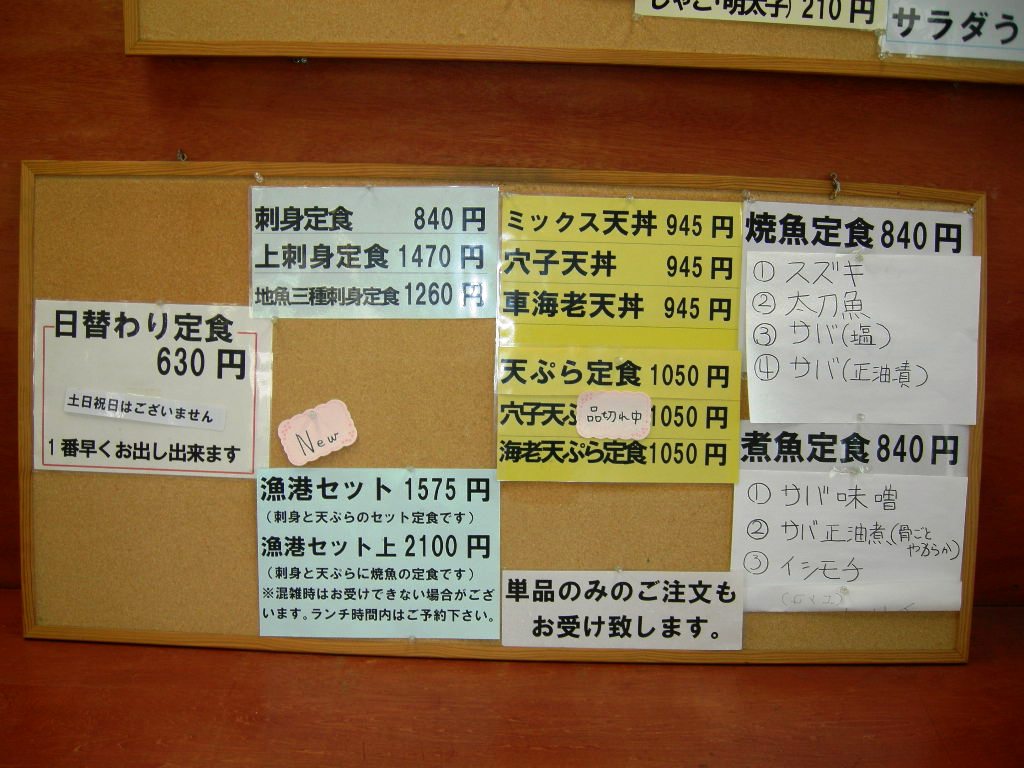 明太子) 210 円
サラダう
日替わり定食
630 円
土日祝日はございません
1番早くお出し出来ます
刺身定食 840 円
上刺身定食 1470 円
地魚三種刺身定食 1260 円
New
漁港セット 1575 円
(刺身と天ぷらのセット定食です)
漁港セット上 2100 円
(刺身と天ぷらに焼魚の定食です)
※混雑時はお受けできない場合がござ
います。ランチ時間内はご予約下さい。
ミックス天丼 945 円
穴子天丼 945 円
車海老天丼 945 円
天ぷら定食 1050 円
穴子天ぷ 品切れ中 1050 円
海老天ぷら定食 1050 円
単品のみのご注文も
お受け致します。
焼魚定食 840 円
① スズキ
② 太刀魚
③ サバ(塩)
④ サバ(正油漬)
煮魚定食 840 円
① サバ味噌
② サバ正油煮(骨ごと
やわらか)
③ イシモチ